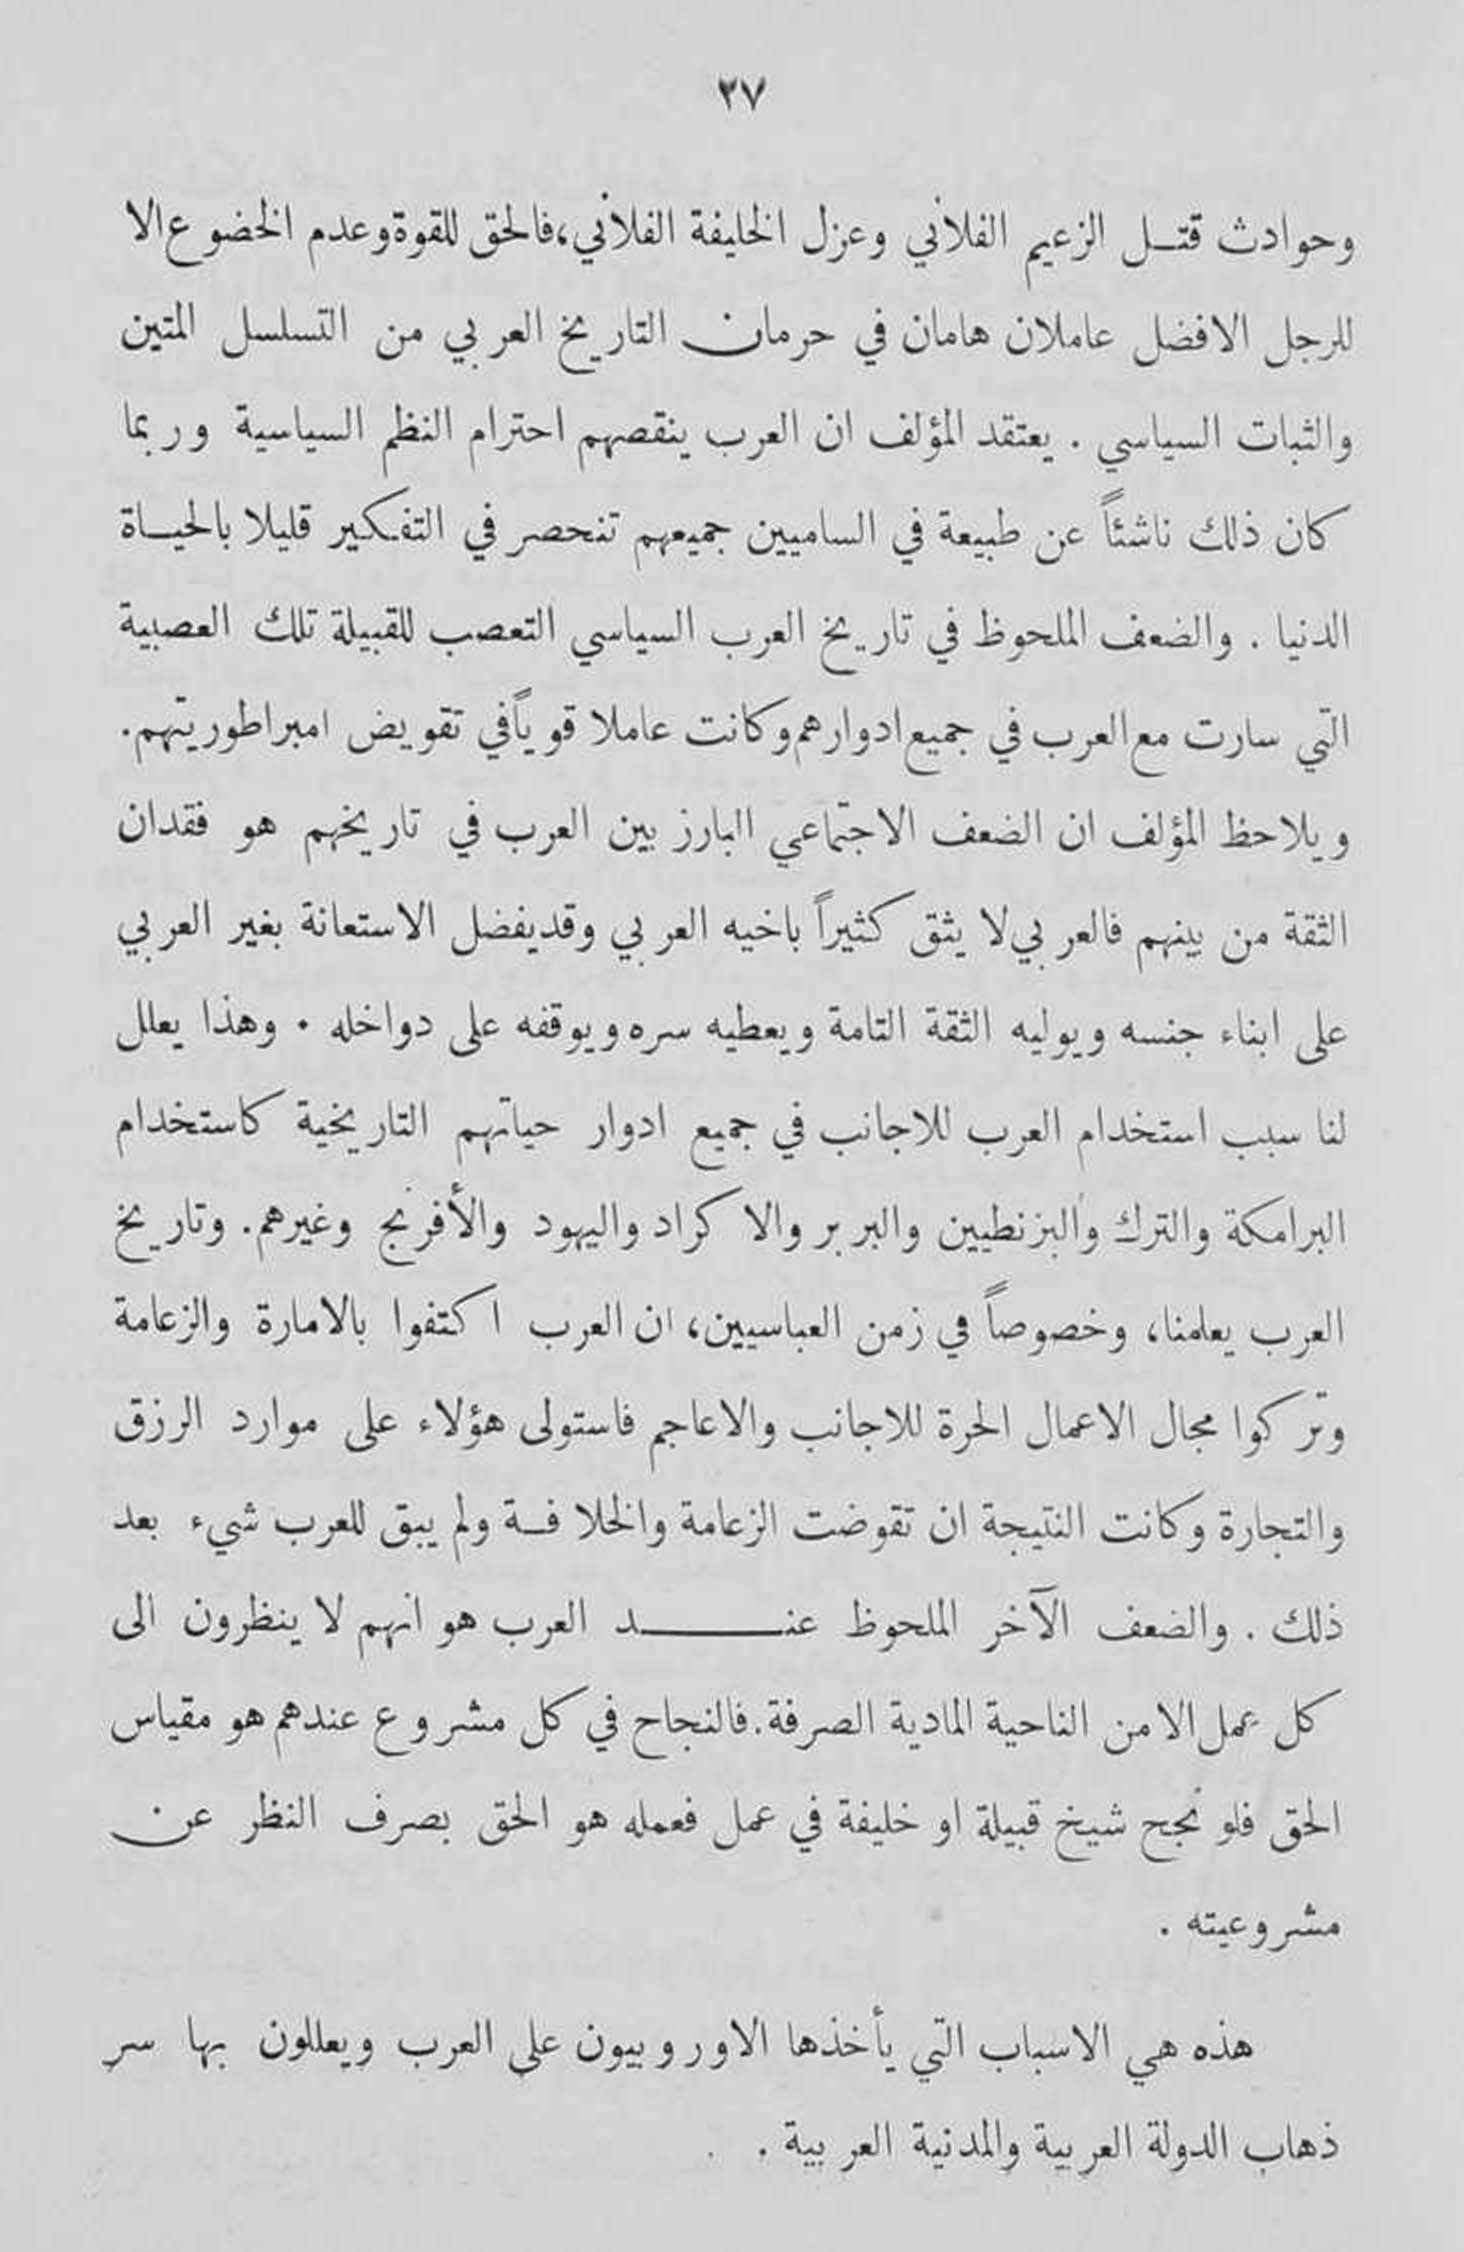 ٢٧
وحوادث قتـل الزعيم الفلاني وعزل الخليفة الفلاني، فالحق للقوة وعدم الخضوع الا
للرجل الافضل عاملان هامان في حرمان التاريخ العربي من التسلسل المتين
والثبات السياسي . يعتقد المؤلف ان العرب ينقصهم احترام النظم السياسية وربما
كان ذلك ناشئاً عن طبيعة في الساميين جميعهم تنحصر في التفكير قليلا بالحيـاة
الدنيا . والضعف الملحوظ في تاريخ العرب السياسي التعصب للقبيلة تلك العصبية
التي سارت مع العرب في جميع ادوارهم وكانت عاملا قوياً في تقويض امبراطوريتهم.
ويلاحظ المؤلف ان الضعف الاجتماعي البارز بين العرب في تاريخهم هو فقدان
الثقة من بينهم فالعربي لا يثق كثيراً باخيه العربي وقد يفضل الاستعانة بغير العربي
على ابناء جنسه ويوليه الثقة التامة ويعطيه سره ويوقفه على دواخله . وهذا يعلل
لنا سبب استخدام العرب للاجانب في جميع ادوار حياتهم التاريخية كاستخدام
البرامكة والترك والبزنطيين والبربر والاكراد واليهود والأفرنج وغيرهم. وتاريخ
العرب يعلمنا، وخصوصاً في زمن العباسيين، ان العرب اكتفوا بالامارة والزعامة
وتركوا مجال الاعمال الحرة للاجانب والاعاجم فاستولى هؤلاء على موارد الرزق
والتجارة وكانت النتيجة ان تقوضت الزعامة والخلافـة ولم يبق للعرب شيء بعد
ذلك . والضعف الآخر الملحوظ عنـــــد العرب هو انهم لا ينظرون الى
كل عمل الا من الناحية المادية الصرفة. فالنجاح في كل مشروع عندهم هو مقياس
الحق فلو نجح شيخ قبيلة او خليفة في عمل فعمله هو الحق بصرف النظر عن
مشروعيته .
هذه هي الاسباب التي يأخذها الاوروبيون على العرب ويعللون بها سر
ذهاب الدولة العربية والمدنية العربية .